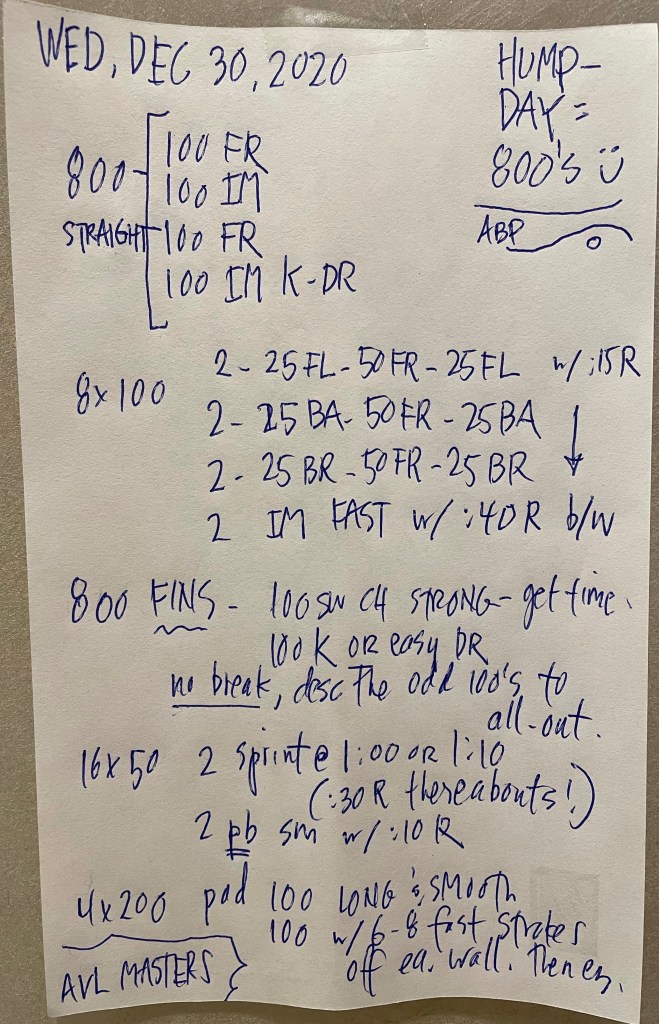 WED, DEC 30, 2020
HUMP-
DAY =
800's
ABP
800
STRAIGHT
100 FR
100 IM
100 FR
100 IM K-DR
8x100
2- 25 FL - 50 FR - 25 FL w/ :15 R
2- 25 BA - 50 FR - 25 BA
2- 25 BR - 50 FR - 25 BR
2 IM FAST w/ :40 R b/w
800 FINS - 100 SW CH STRONG - get time.
100 K OR easy DR
no break, desc the odd 100's to
all-out.
16x50 2 sprint @ 1:00 OR 1:10
(:30 R thereabouts!)
2 pb sm w/ :10 R
4x200 pad 100 LONG & SMOOTH
100 w/ 6-8 fast strokes
off ea. wall. then ez.
AVL MASTERS